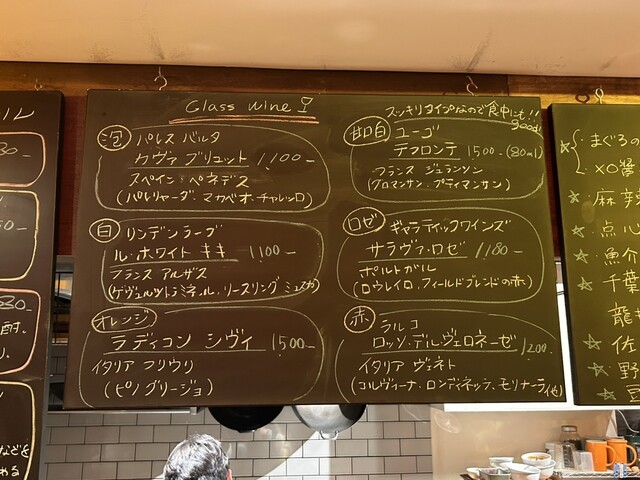 Glass wine
泡 パレス バルタ
ケヴァ ブリュット 1,100-
スペイン・ペネデス
(パレリャーダ、マカベオ・チャレッロ)
白 リンデンラーブ
ル・ホワイト キキ 1,100-
フランス アルザス
(ゲヴュルツトラミネール、リースリング ミュスカ)
オレンジ
ラディコン シヴィ 1,500-
イタリア フリウリ
(ピノグリージョ)
スッキリタイプなので食中にも!!
good!
甘口白 ユーゴ
デフロンテ 1,500-(80ml)
フランス ジュランソン
(グロマンサン・プティマンサン)
ロゼ ギャラティックワインズ
サラヴァ・ロゼ 1,180-
ポルトガル
(ロウレイロ、フィールドブレンドの赤)
赤 ラルコ
ロッソ・デル・ヴェロネーゼ 1,200-
イタリア ヴェネト
(コルヴィーナ・ロンディネッラ、モリナーラ他)
まぐろの
XO醤
麻辣
点心
魚介
千葉
龍
佐
野
豆